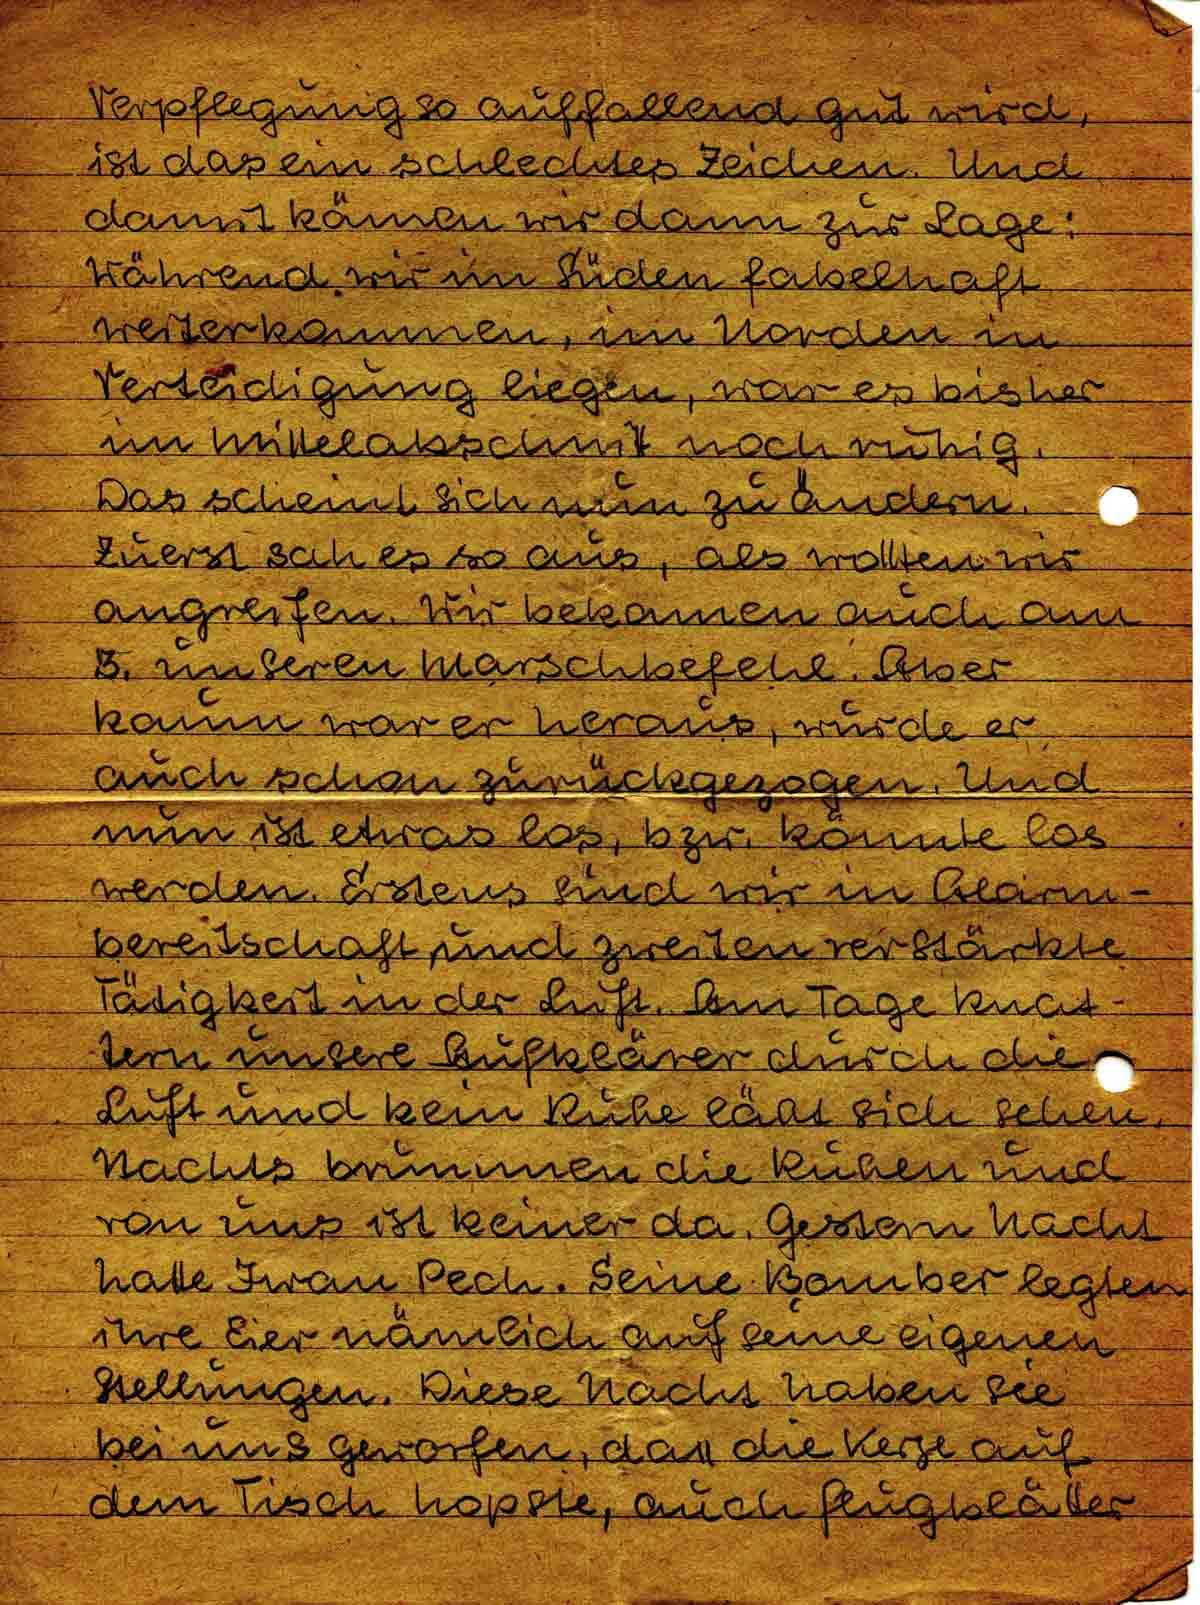 Verpflegung so auffallend gut wird,
ist das ein schlechtes Zeichen. Und
damit kämen wir dann zur Lage:
Während wir im Süden fabelhaft
weiterkommen, im Norden in
Verteidigung liegen, war es bisher
im Mittelabschnitt noch ruhig.
Das scheint sich nun zu ändern.
Zuerst sah es so aus, als wollten wir
angreifen. Wir bekamen auch am
3. unseren Marschbefehl. Aber
kaum war er heraus, wurde er
auch schon zurückgezogen. Und
nun ist etwas los, bzw. könnte los
werden. Erstens sind wir in Alarm-
bereitschaft, und zweiten verstärkte
Tätigkeit in der Luft. Am Tage knat-
tern unsere Aufklärer durch die
Luft und kein Ruhe läßt sich sehen.
Nachts brummen die Ruhen und
von uns ist keiner da. Gestern Nacht
hatte Iwan Pech. Seine Bomber legten
ihre Eier nämlich auf seine eigenen
Stellungen. Diese Nacht haben sie
bei uns geworfen, daß die Kerze auf
dem Tisch hopste, auch Flugblätter